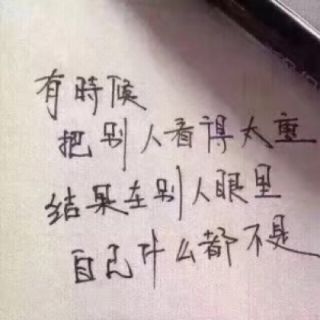 有時候
把别人看得太重
结果在别人眼里
自己什么都不是